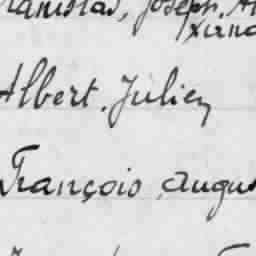 Stanislas, Joseph, A
Albert, Julien
François, Augus